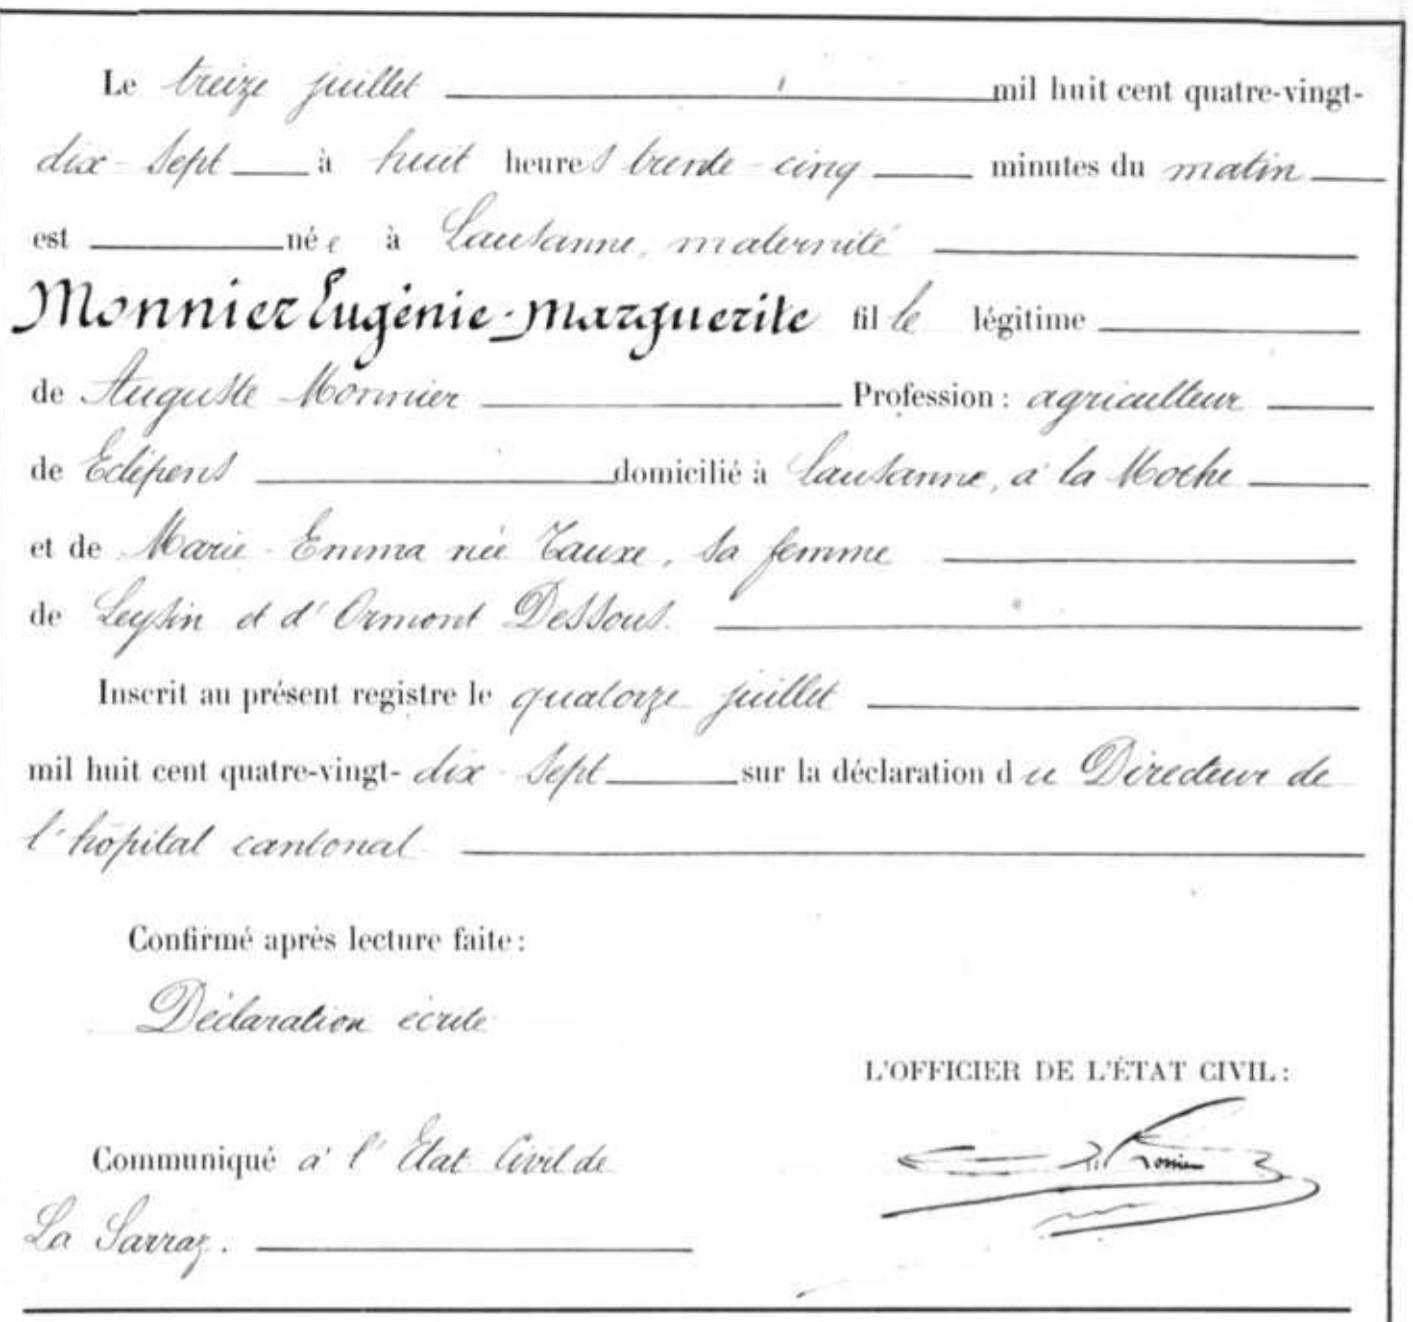 Le treize juillet mil huit cent quatre-vingt-
dix-sept à huit heures trente-cinq minutes du matin
est née à Lausanne, maternité
Monnier Eugénie-Marguerite fille légitime
de Auguste Monnier Profession : agriculteur
de Eclépens domicilié à Lausanne, à la
et de Marie-Emma née Tauxe, sa femme
de Leysin et d'Ormont Dessous.
Inscrit au présent registre le quatorze juillet
mil huit cent quatre-vingt-dix-sept sur la déclaration du Directeur de
l'hôpital cantonal
Confirmé après lecture faite :
Déclaration écrite
L'OFFICIER DE L'ÉTAT CIVIL :
Communiqué à l'Etat Civil de
La Sarraz.